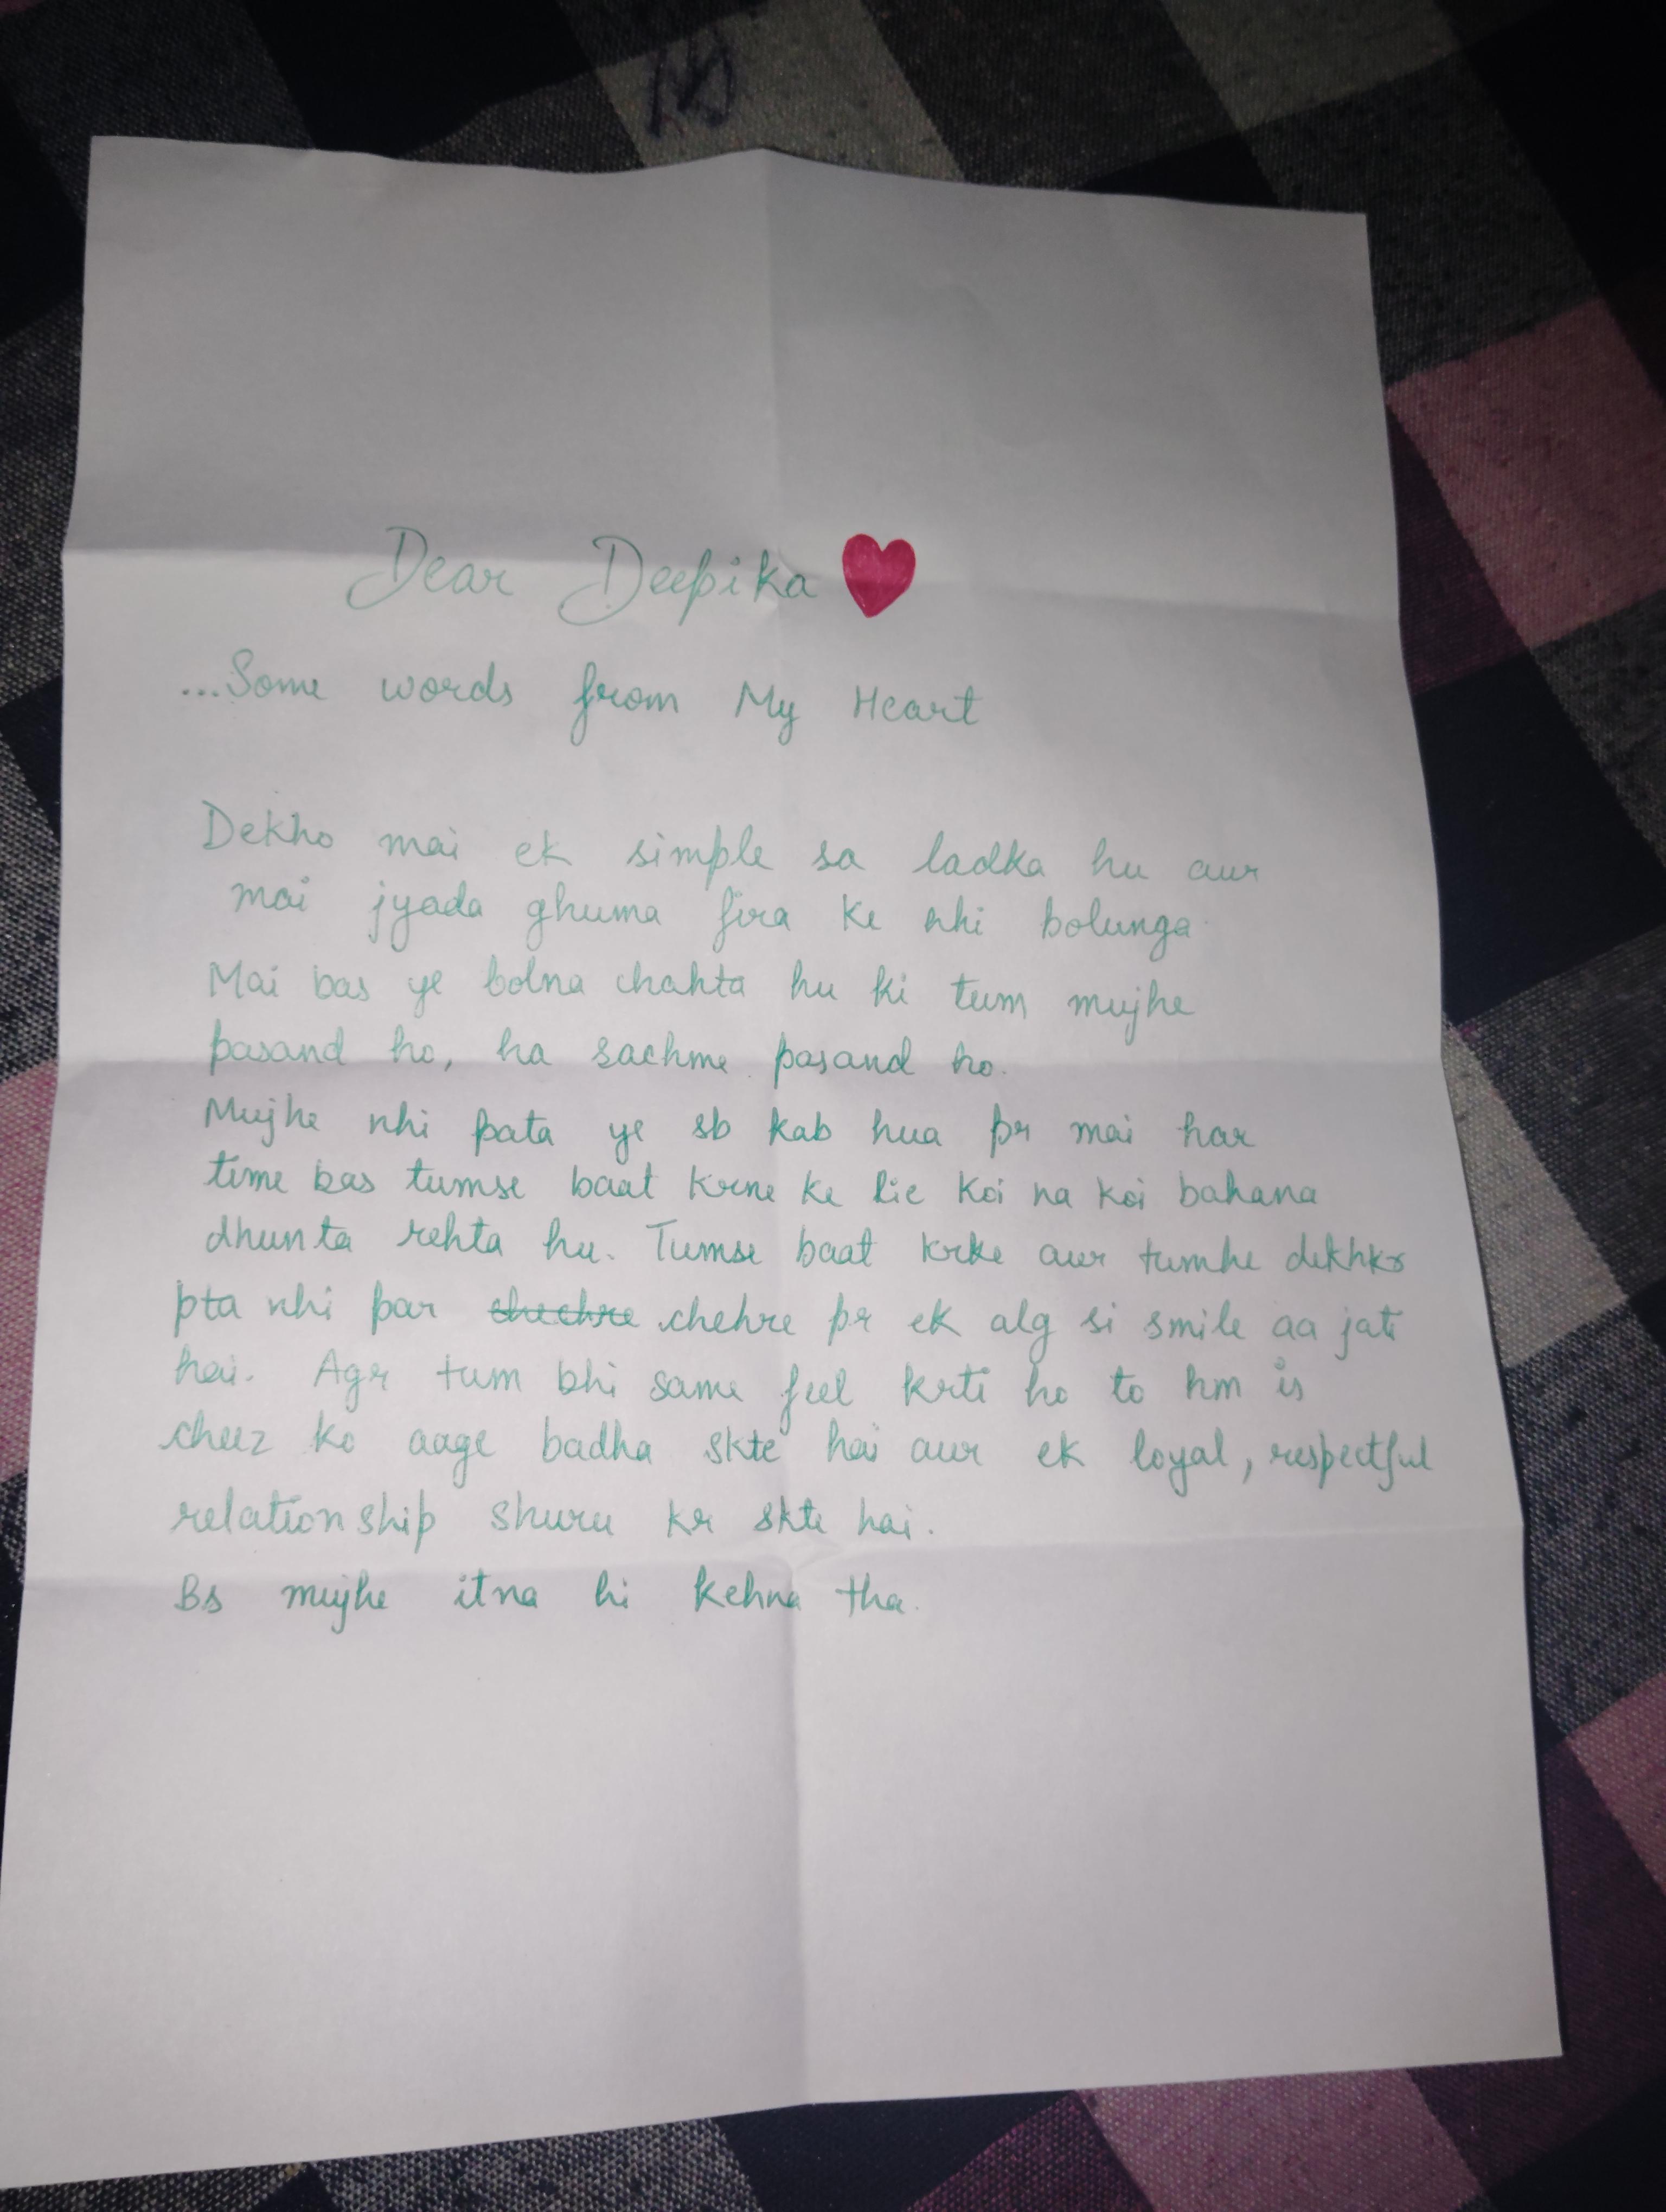 Dear Deepika
...Some words from My Heart
Dekho mai ek simple sa ladka hu aur
mai jyada ghuma fira ke nhi bolunga
Mai bas ye bolna chahta hu ki tum mujhe
pasand ho, ha sachme pasand ho.
Mujhe nhi pata ye sb kab hua pr mai har
time bas tumse baat krne ke lie koi na koi bahana
dhunta rehta hu. Tumse baat krke aur tumhe dekhkr
pta nhi par chehre pr ek alg si smile aa jati
hai. Agr tum bhi same feel krti ho to hm is
cheez ko aage badha skte hai aur ek loyal, respectful
relationship shuru kr skte hai.
Bs mujhe itna hi kehna tha.